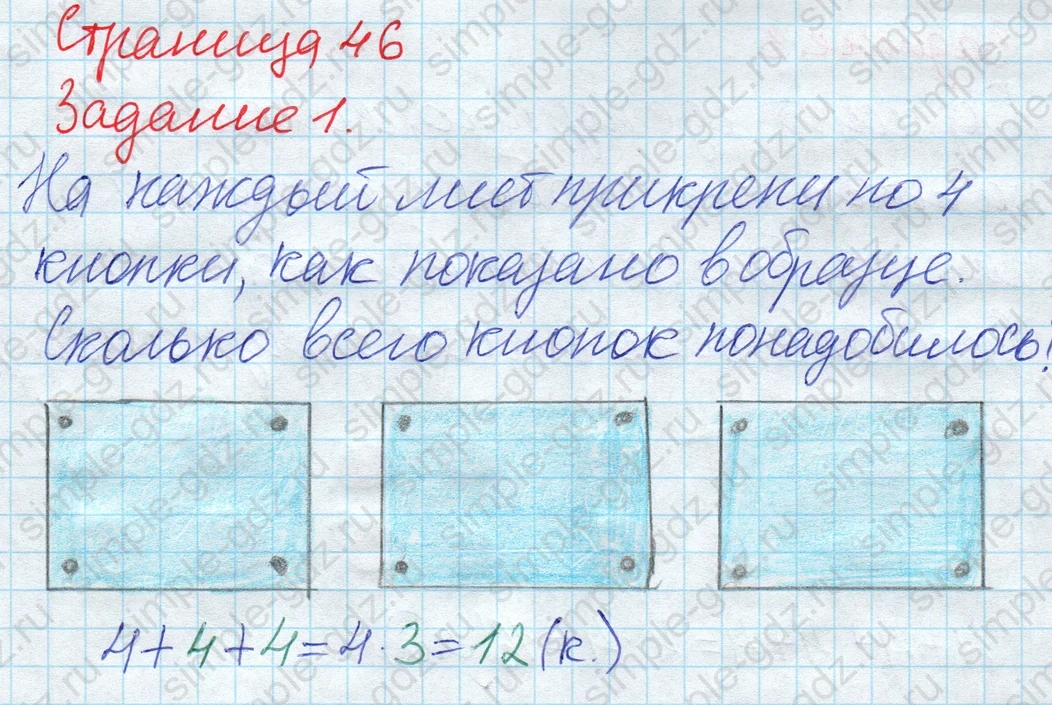 Страница 46
Задание 1.
На каждый лист прикрепи по 4
кнопки, как показано в образце.
Сколько всего кнопок понадобилось?
4+4+4=4·3=12(к.)
simple-gdz.ru